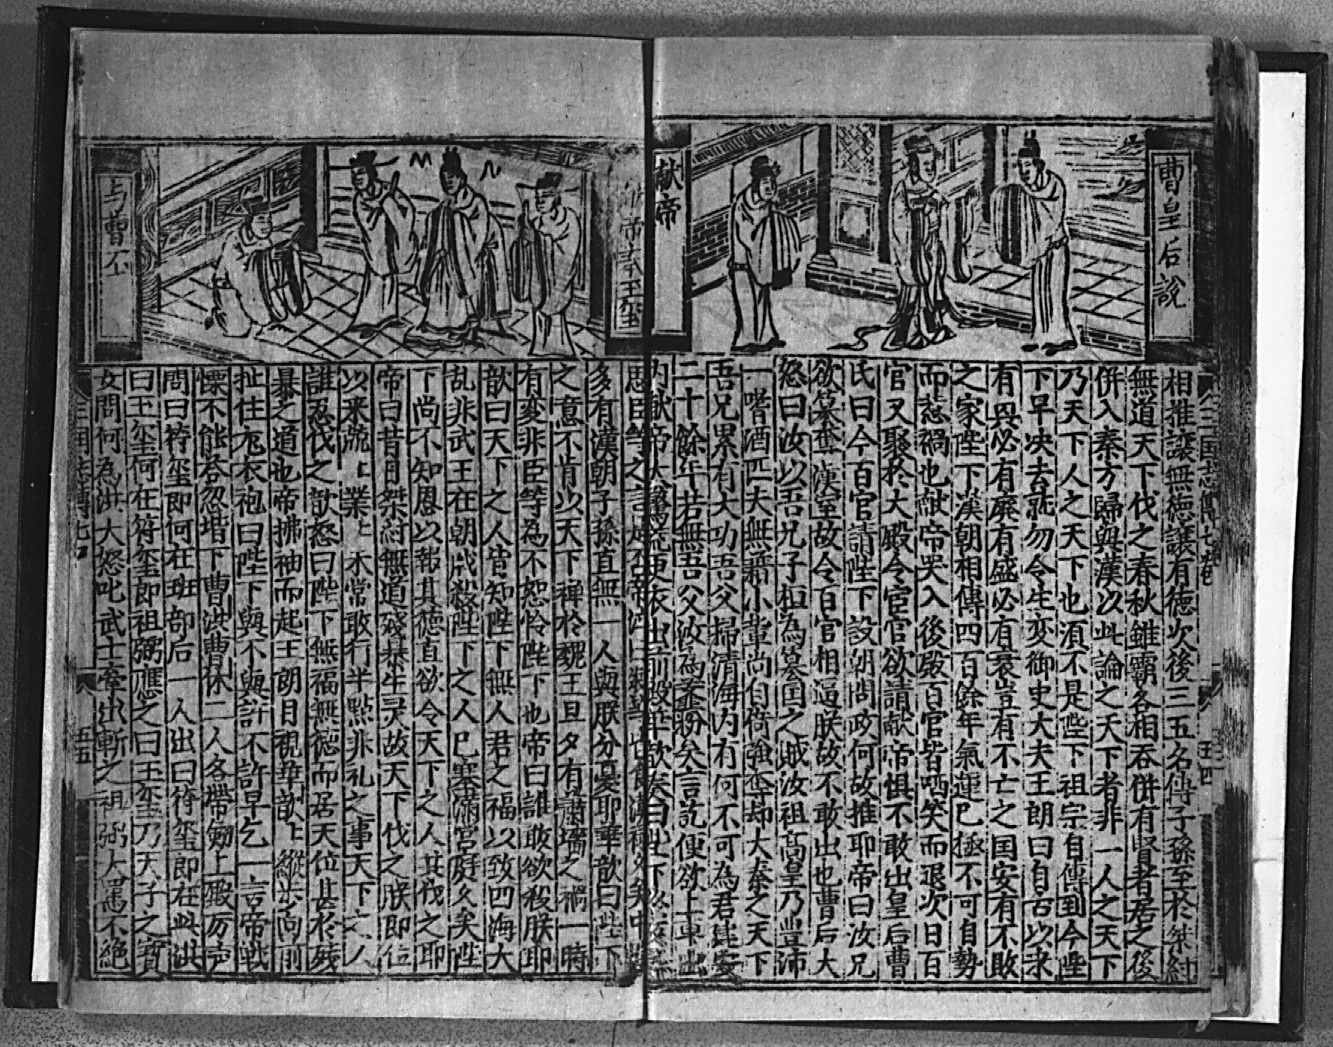 曹皇后說
献帝
相推讓無德讓有德次後三五名傳子孫至於桀紂
無道天下伐之春秋雖霸各相吞併有賢者居之後
併入秦方歸與漢以此論之天下者非一人之天下
乃天下人之天下也須不是陛下祖宗自傳到今陛
下早决去就勿令生变御史大夫王朗曰自古以来
有興必有廃有盛必有衰豈有不亡之国安有不敗
之家陛下漢朝相傳四百餘年氣運已極不可自勢
而惹禍也献帝哭入後殿百官皆哂笑而退次日百
官又聚於大殿令宦官欲請献帝惧不敢出皇后曹
氏曰今百官請陛下設朝問政何故推耶帝曰汝兄
欲篡奪漢室故令百官相逼朕故不敢出也曹后大
怒曰汝以吾兄子桓為篡国之贼汝祖高皇乃豊沛
一嗜酒匹夫無籍小輩尚自倚強夺却大秦之天下
吾兄累有大功吾父掃清海内有何不可為君
二十餘年若無吾父汝為虀粉矣言訖便欲上車出
内献帝大驚慌更衣出前殿華歆奏曰陛下
与曹丕
思臣等之言
多有漢朝子孫直無一人與朕分憂耶華歆曰陛下
之意不肯以天下禅於魏王旦夕有蕭墻之禍一時
有变非臣等為不恕怜陛下也帝曰誰敢欲殺朕耶
歆曰天下之人皆知陛下無人君之福以致四海大
乱非武王在朝殺陛下之人已塞滿宮庭久矣陛
下尚不知恩以報其德直欲令天下之人共伐之耶
帝曰昔日桀紂無道殘暴生灵故天下伐之朕即位
以来兢上業上未常敢行半點非礼之事天下之人
誰忍伐之歆怒曰陛下無福無德而居天位甚於殘
暴之道也帝拂袖而起王朗目視華歆上縱步向前
扯住竜衣袍曰陛下與不與許不許早乞一言帝戰
慄不能答忽堦下曹洪曹休二人各帶劒上殿厉声
問曰符璽即何在班部后一人出曰符璽即在此洪
曰玉玺何在符玺即祖弼應之曰玉玺乃天子之寳
女問何為洪大怒叱武士牽出斬之祖弼大罵不絶
五五